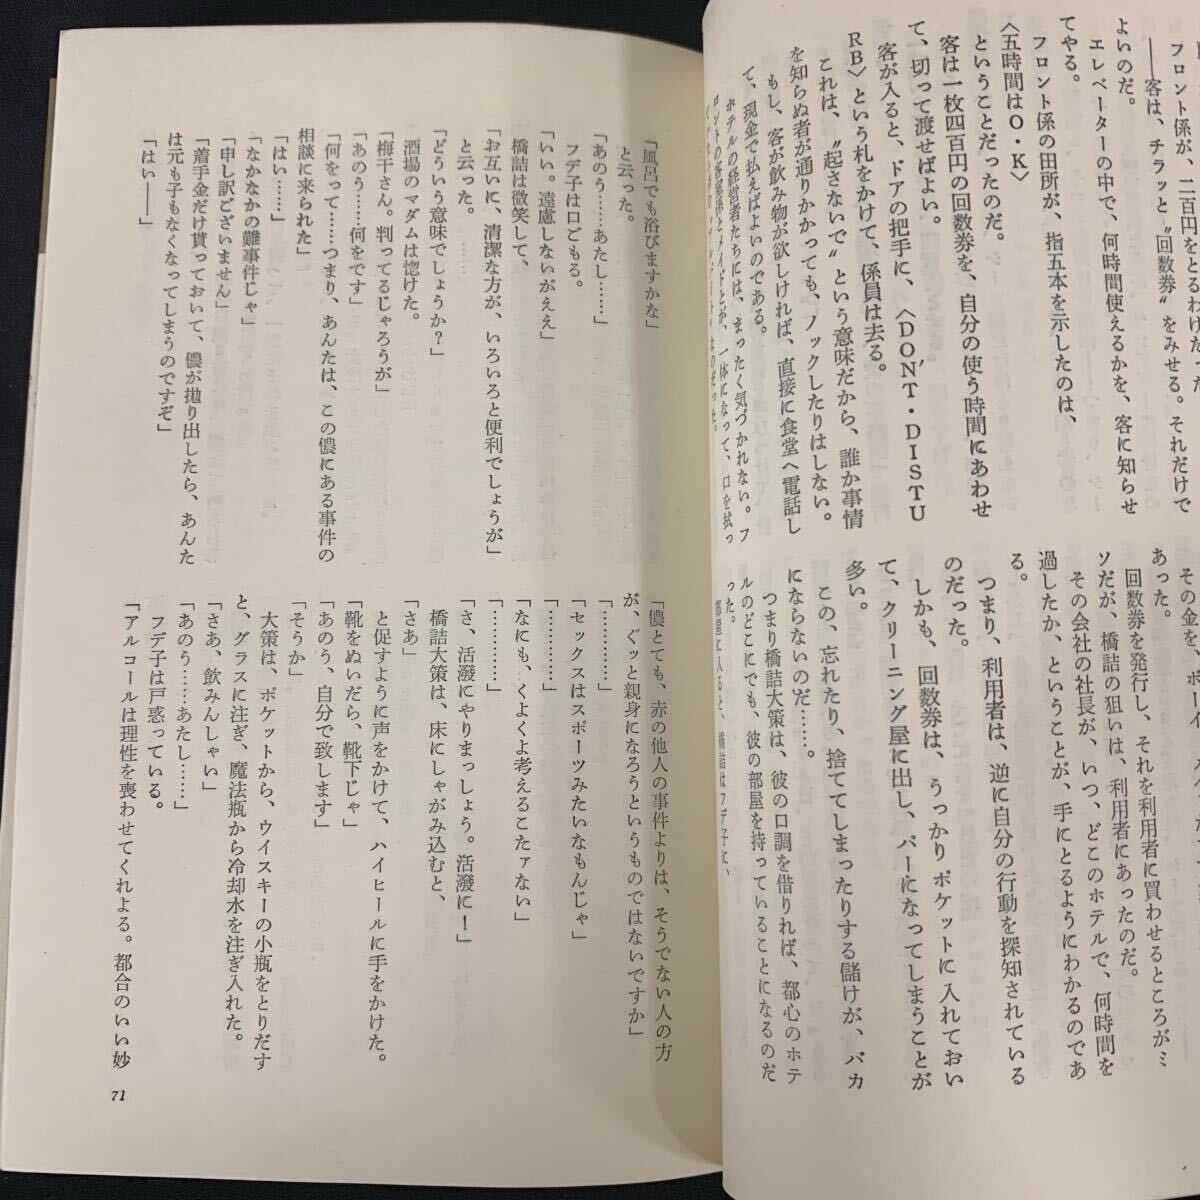 フロント係が、二百円をとるわけだった
――客は、チラッと〝回数券〟をみせる。それだけで
よいのだ。
エレベーターの中で、何時間使えるかを、客に知らせ
てやる。
フロント係の田所が、指五本を示したのは、
〈五時間はO・K〉
ということだったのだ。
客は一枚四百円の回数券を、自分の使う時間にあわせ
て、切って渡せばよい。
客が入ると、ドアの把手に、〈DON'T・DISTU
RB〉という札をかけて、係員は去る。
これは、〝起さないで〟という意味だから、誰か事情
を知らぬ者が通りかかっても、ノックしたりはしない。
もし、客が飲み物が欲しければ、直接に食堂へ電話し
て、現金で払えばよいのである。
ホテルの経営者たちには、まったく気づかれない。フ
ロントの客室係とメイドとが、一体になって、口を拭っ
その金を、ボーイ
あった。
回数券を発行し、それを利用者に買わせるところがミ
ソだが、橋詰の狙いは、利用者にあったのだ。
その会社の社長が、いつ、どこのホテルで、何時間を
過したか、ということが、手にとるようにわかるのであ
る。
つまり、利用者は、逆に自分の行動を探知されている
のだった。
しかも、回数券は、うっかりポケットに入れておい
て、クリーニング屋に出し、パーになってしまうことが
多い。
この、忘れたり、捨ててしまったりする儲けが、バカ
にならないのだ……。
つまり橋詰大策は、彼の口調を借りれば、都心のホテ
ルのどこにでも、彼の部屋を持っていることになるのだ
った。
部屋に入ると、橋詰はフデ子に、
「風呂でも浴びますかな」
と云った。
「あのう……あたし……」
フデ子は口ごもる。
「いい。遠慮しないがええ」
橋詰は微笑して、
「お互いに、清潔な方が、いろいろと便利でしょうが」
と云った。
「どういう意味でしょうか？」
酒場のマダムは惚けた。
「梅干さん。判ってるじゃろうが」
「あのう……何をです」
「何をって……つまり、あんたは、この儂にある事件の
相談に来られた」
「はい……」
「なかなかの難事件じゃ」
「申し訳ございません」
「着手金だけ貰っておいて、儂が抛り出したら、あんた
は元も子もなくなってしまうのですぞ」
「はい――」
「儂とても、赤の他人の事件よりは、そうでない人の方
が、ぐッと親身になろうというものではないですか」
「…………」
「セックスはスポーツみたいなもんじゃ」
「…………」
「なにも、くよくよ考えるこたァない」
「…………」
「さ、活潑にやりまっしょう。活潑に！」
橋詰大策は、床にしゃがみ込むと、
「さあ」
と促すように声をかけて、ハイヒールに手をかけた。
「靴をぬいだら、靴下じゃ」
「あのう、自分で致します」
「そうか」
大策は、ポケットから、ウイスキーの小瓶をとりだす
と、グラスに注ぎ、魔法瓶から冷却水を注ぎ入れた。
「さあ、飲みんしゃい」
「あのう……あたし……」
フデ子は戸惑っている。
「アルコールは理性を喪わせてくれよる。都合のいい妙
71